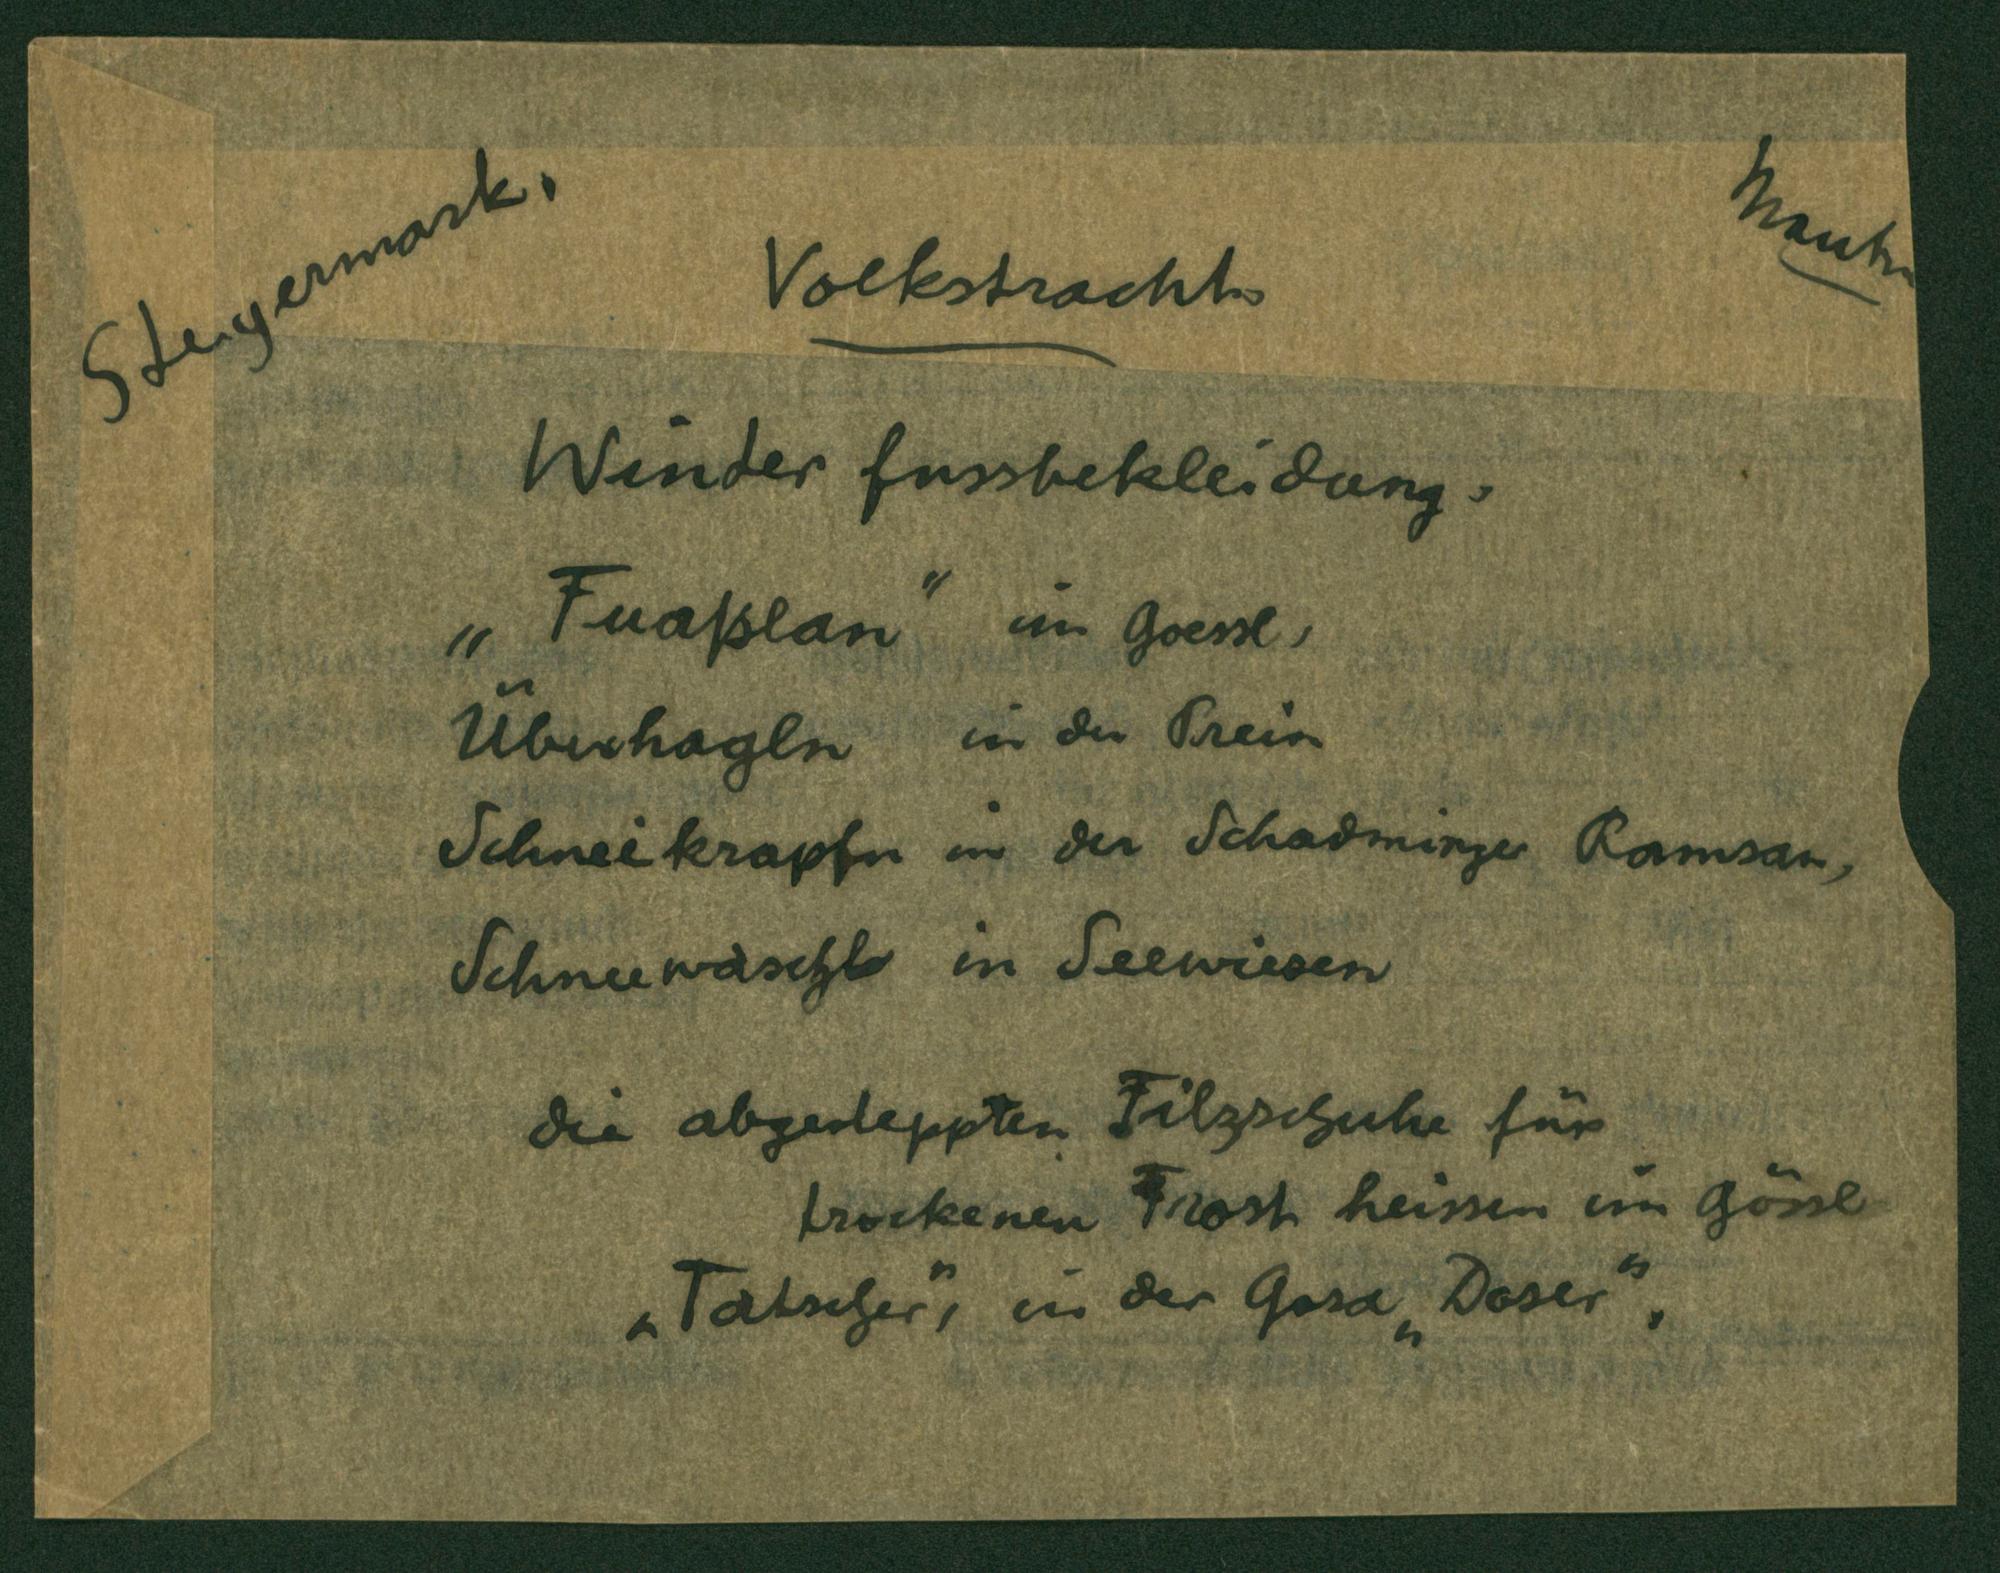 Steyermark.
Mautn
Volkstracht.
Winter fussbekleidung.
„Fuaßlan" im Goessl,
Überhagln in der Prein
Schneekrapfn in der Schadminger Ramsau,
Schneewaschl in Seewiesen
die abgesteppten Filzschuhe für
trockenen Frost heissen im Gössl
„Tatscher", in der Gosa „Doser".